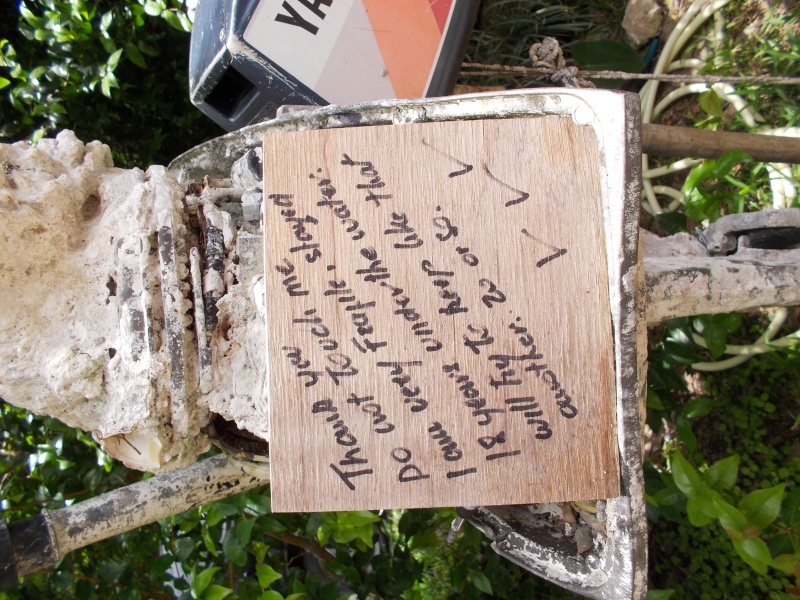 YA
Thank you
Do not Touch me
I am very Fragile, stayed
18 years under the water.
will try to keep like that
another. 20 or so.